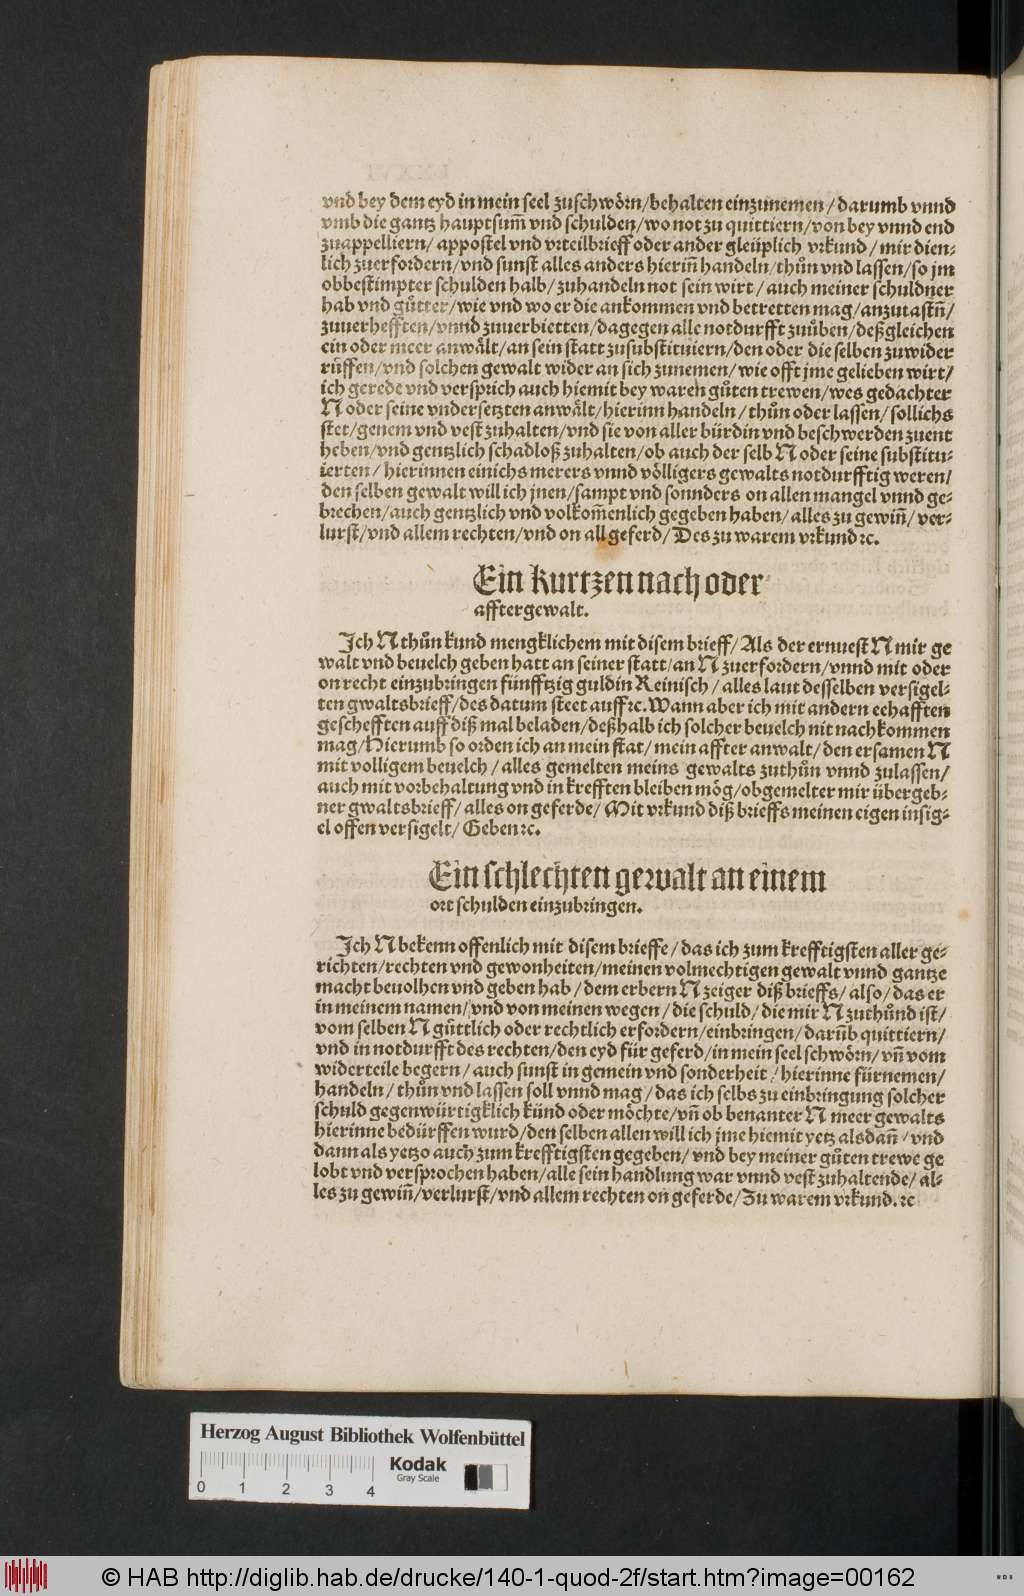 vnd bey dem eyd in mein seel zuschwörn/behalten einzunemen/darumb vnnd
vmb die gantz hauptsum̄ vnd schulden/wo not zu quittiern/von bey vnnd end
zuappelliern/appostel vnd vrteilbrieff oder ander gleüplich vrkund/mir dien⸗
lich zuerfordern/vnd sunst alles anders hierin̄ handeln/thůn vnd lassen/so jm
obbestimpter schulden halb/zuhandeln not sein wirt/auch meiner schuldner
hab vnd gůtter/wie vnd wo er die ankommen vnd betretten mag/anzutastn̄/
zuuerhefften/vnnd zuuerbietten/dagegen alle notdurfft zuůben/deßgleichen
ein oder meer anwält/an sein statt zusubstituiern/den oder die selben zuwider
rüffen/vnd solchen gewalt wider an sich zunemen/wie offt jme gelieben wirt/
ich gerede vnd versprich auch hiemit bey waren gůten trewen/wes gedachter
N oder seine vndersetzten anwält/hierinn handeln/thůn oder lassen/sollichs
stet/genem vnd vest zuhalten/vnd sie von aller bürdin vnd beschwerden zuent
heben/vnd gentzlich schadloß zuhalten/ob auch der selb N oder seine substitu⸗
ierten/hierinnen einichs merers vnnd völligers gewalts notdurfftig weren/
den selben gewalt will ich jnen/sampt vnd sonnders on allen mangel vnnd ge⸗
brechen/auch gentzlich vnd volkom̄enlich gegeben haben/alles zu gewin̄/ver⸗
lurst/vnd allem rechten/vnd on all geferd/Des zu warem vrkund ꝛc.
Ein kurtzen nach oder
afftergewalt.
Ich N thůn kund mengklichem mit disem brieff/Als der ernuest N mir ge
walt vnd beuelch geben hatt an seiner statt/an N zuerfordern/vnnd mit oder
on recht einzubringen fünfftzig guldin Reinisch/alles laut desselben versigel⸗
ten gwaltsbrieff/des datum steet auff ꝛc. Wann aber ich mit andern eehafften
geschefften auff diß mal beladen/deßhalb ich solcher beuelch nit nachkommen
mag/Hierumb so orden ich an mein stat/mein affter anwalt/den ersamen N
mit volligem beuelch/alles gemelten meins gewalts zuthůn vnnd zulassen/
auch mit vorbehaltung vnd in krefften bleiben mög/obgemelter mir übergeb⸗
ner gwaltsbrieff/alles on geferde/Mit vrkund diß brieffs meinen eigen insig⸗
el offen versigelt/Geben ꝛc.
Ein schlechten gewalt an einem
ort schulden einzubringen.
Ich N bekenn offenlich mit disem brieffe/das ich zum krefftigsten aller ge⸗
richten/rechten vnd gewonheiten/meinen volmechtigen gewalt vnnd gantze
macht beuolhen vnd geben hab/dem erbern N zeiger diß brieffs/also/das er
in meinem namen/vnd von meinen wegen/die schuld/die mir N zuthůnd ist/
vom selben N gůttlich oder rechtlich erfordern/einbringen/darūb quittiern/
vnd in notdurfft des rechten/den eyd für geferd/in mein seel schwörn/vn̄ vom
widerteile begern/auch sunst in gemein vnd sonderheit/hierinne fürnemen/
handeln/thůn vnd lassen soll vnnd mag/das ich selbs zu einbringung solcher
schuld gegenwürtigklich künd oder möchte/vn̄ ob benanter N meer gewalts
hierinne bedürffen wurd/den selben allen will ich jme hiemit yetz alsdan̄/vnd
dann als yetzo auch zum krefftigsten gegeben/vnd bey meiner gůten trewe ge
lobt vnd versprochen haben/alle sein handlung war vnnd vest zuhaltende/al⸗
les zu gewin̄/verlurst/vnd allem rechten on geferde/Zu warem vrkund. ꝛc
Herzog August Bibliothek Wolfenbüttel
Kodak
Gray Scale
0 1 2 3 4
© HAB http://diglib.hab.de/drucke/140-1-quod-2f/start.htm?image=00162